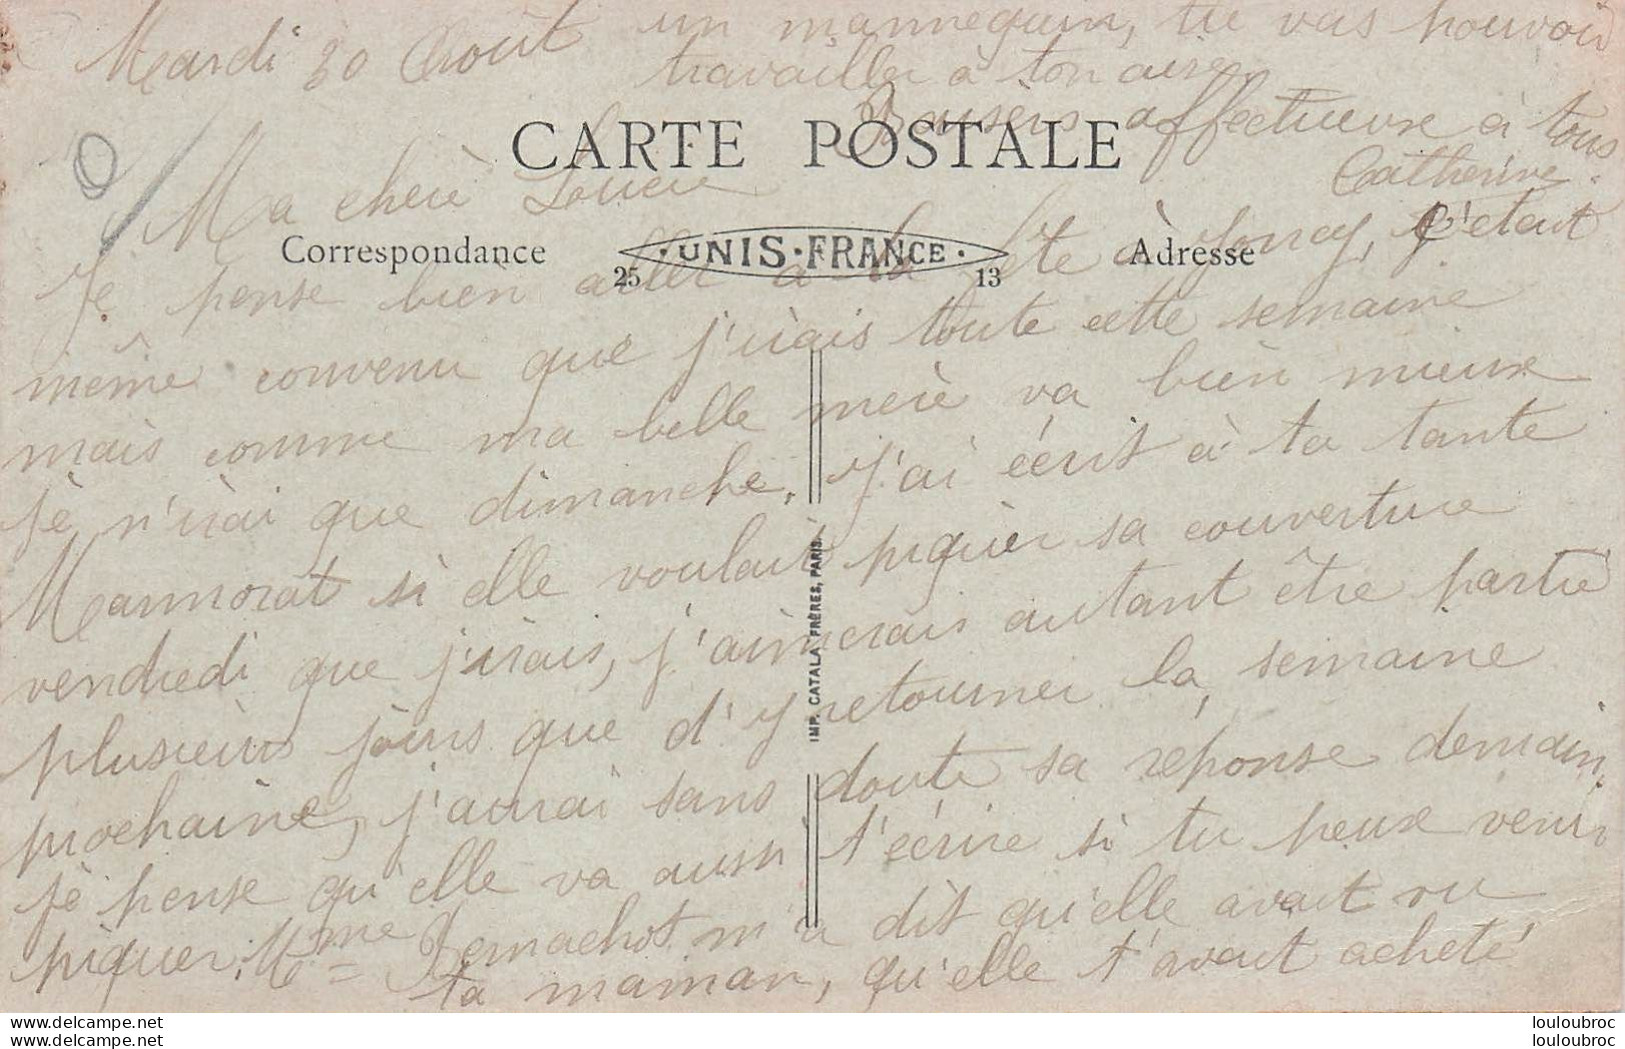 Mardi 30 Août
Ma chère Lucie
Je pense bien aller à la fête à Joncy, c'etait
même convenu que j'irais toute cette semaine
mais comme ma belle mère va bien mieux
je n'irai que dimanche. J'ai écrit à ta tante
si elle voulait piquer sa couverture
vendredi que j'irais, j'aimerais autant être partie
plusieurs jours que d'y retourner la semaine
prochaine, j'aurai sans doute sa reponse demain,
je pense qu'elle va aussi t'écrire si tu peux venir
piquer. Mme m'a dit qu'elle avait vu
ta maman, qu'elle t'avait acheté
un mannequin, tu vas pouvoir
travailler à ton aise
Baisers affectueux à tous
Catherine.
CARTE POSTALE
Correspondance
UNIS·FRANCE
25 13
Adresse
IMP. CATALA FRÈRES, PARIS.
www.delcampe.net
louloubroc
louloubroc